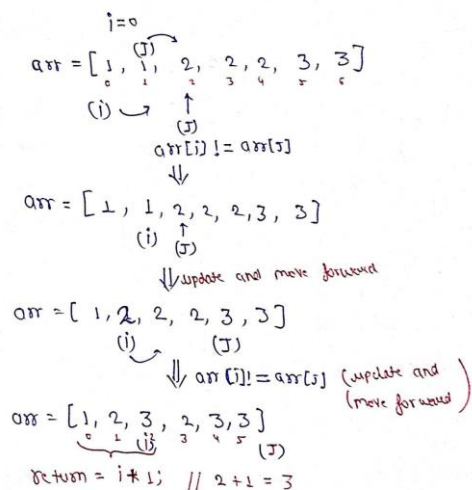 i=0
(J)
arr = [ 1, 1, 2, 2, 2, 3, 3 ]
0 1 2 3 4 5 6
(i) ↑
(J)
arr[i] != arr[J]
⇓
arr = [ 1, 1, 2, 2, 2, 3, 3 ]
(i) ↑
(J)
⇓ update and move forward
arr = [ 1, 2, 2, 2, 3, 3 ]
(i) (J)
⇓ arr[i] != arr[J] (update and
(move forward)
arr = [ 1, 2, 3, 2, 3, 3 ]
0 1 2 3 4 5
(i) (J)
return = i+1; // 2+1 = 3